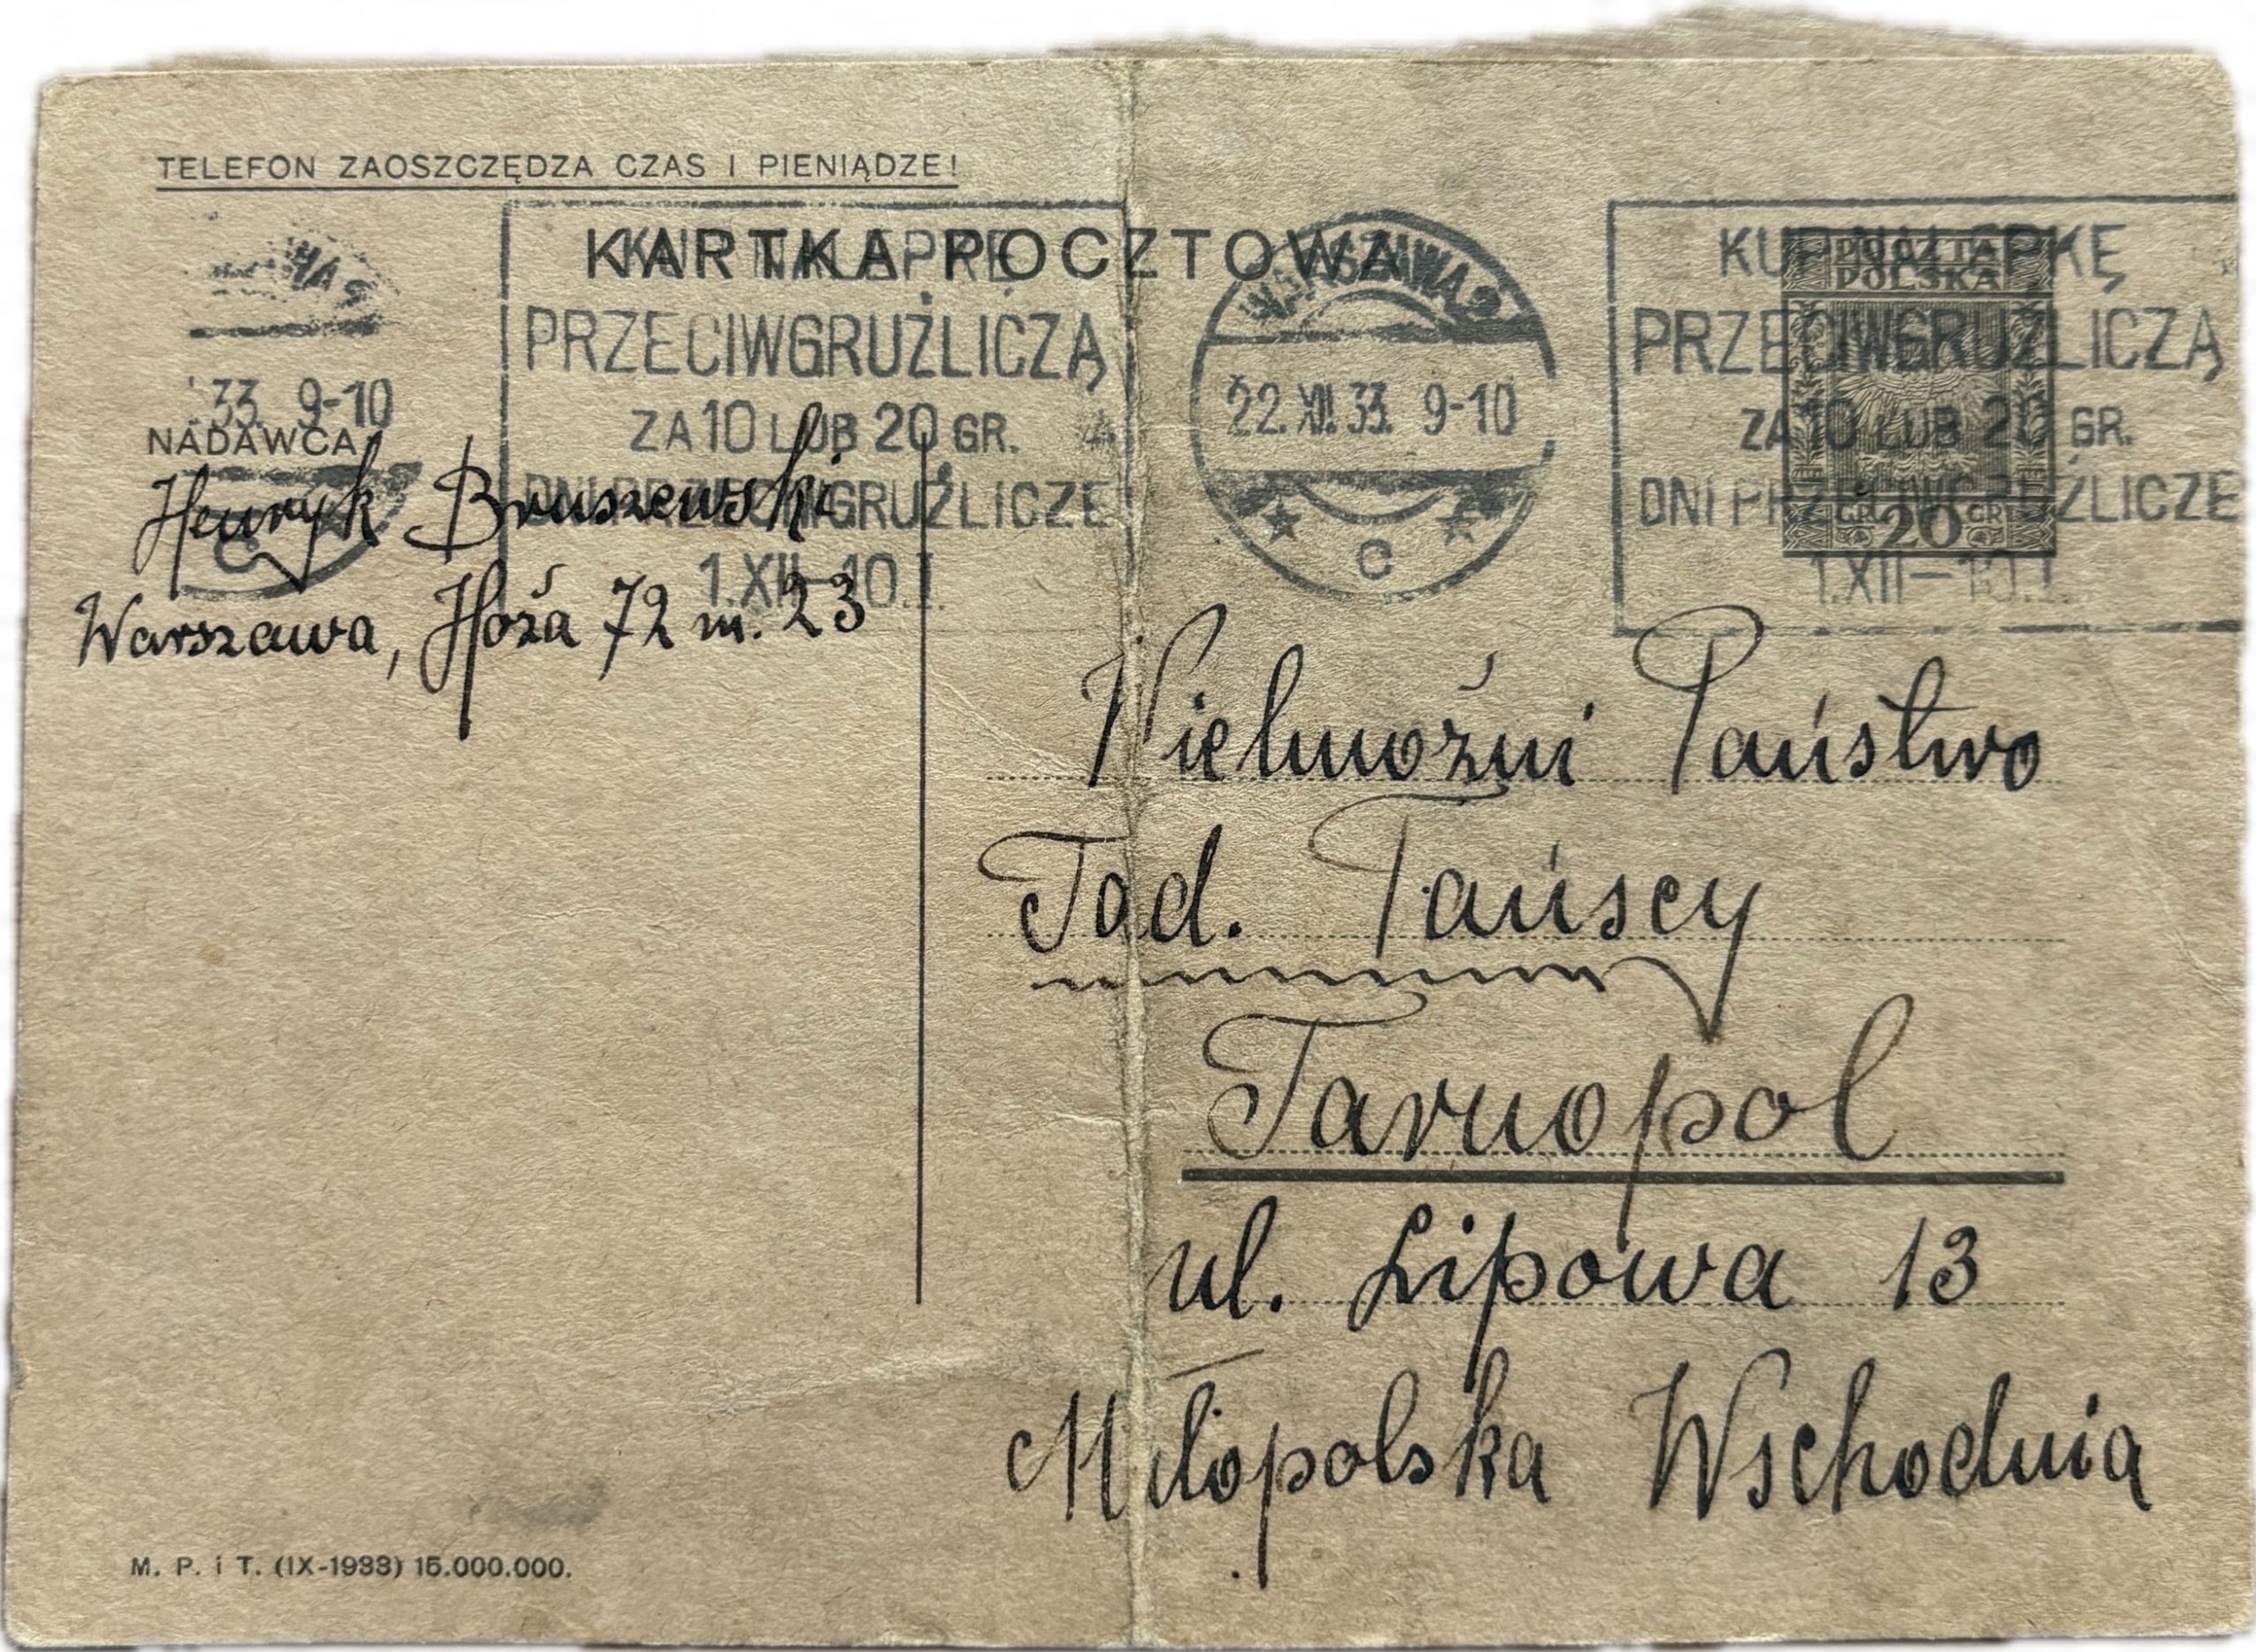 TELEFON ZAOSZCZĘDZA CZAS I PIENIĄDZE!
KARTKA POCZTOWA
KUP NALEPKĘ
PRZECIWGRUŹLICZĄ
ZA 10 LUB 20 GR.
DNI PRZECIWGRUŹLICZE
1.XII–10.I.
33. 9-10
C
WARSZAWA 2
22.XII.33. 9-10
C
KUP NALEPKĘ
PRZECIWGRUŹLICZĄ
ZA 10 LUB 20 GR.
DNI PRZECIWGRUŹLICZE
1.XII–10.I.
POCZTA
POLSKA
GR 20 GR
NADAWCA
Henryk Bruszewski
Warszawa, Hoża 72 m. 23
Wielmożni Państwo
Tad. Tańscy
Tarnopol
ul. Lipowa 13
Młopolska Wschodnia
M. P. i T. (IX-1933) 15.000.000.